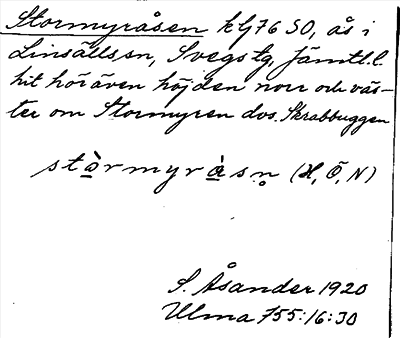 Stormyråsen klj76 SO, ås i
Linsällssn, Svegstg, Jämtl.l.
hit hör även höjden norr och väs-
ter om Stormyren dvs. Skrabbuggen
stà̱rmyrà̱sn̥ (H, Ö, N)
S. Åsander 1920
Ulma 755:16:30